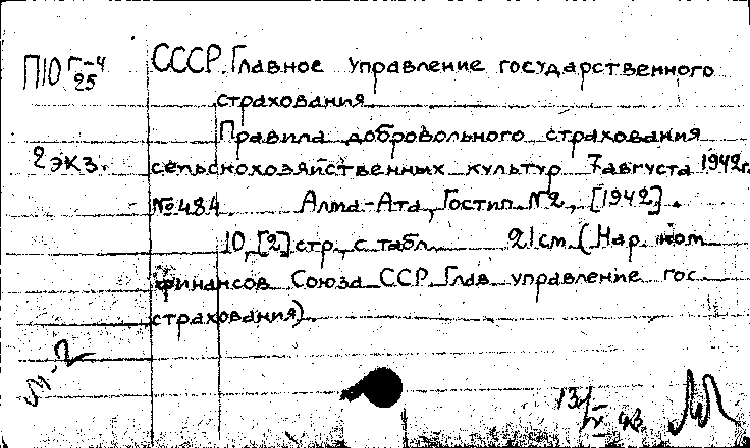 П10 Г-4
25
СССР. Главное управление государственного
страхования
Правила добровольного страхования
2 экз.
сельскохозяйственных культур 7 августа 1942 г.
№ 484. Алма-Ата, Гостип. №2, [1942].
10, [2] стр., с табл. 21 см. (Нар. ком.
финансов Союза ССР. Глав. управление гос.
страхования).
13/IV 43